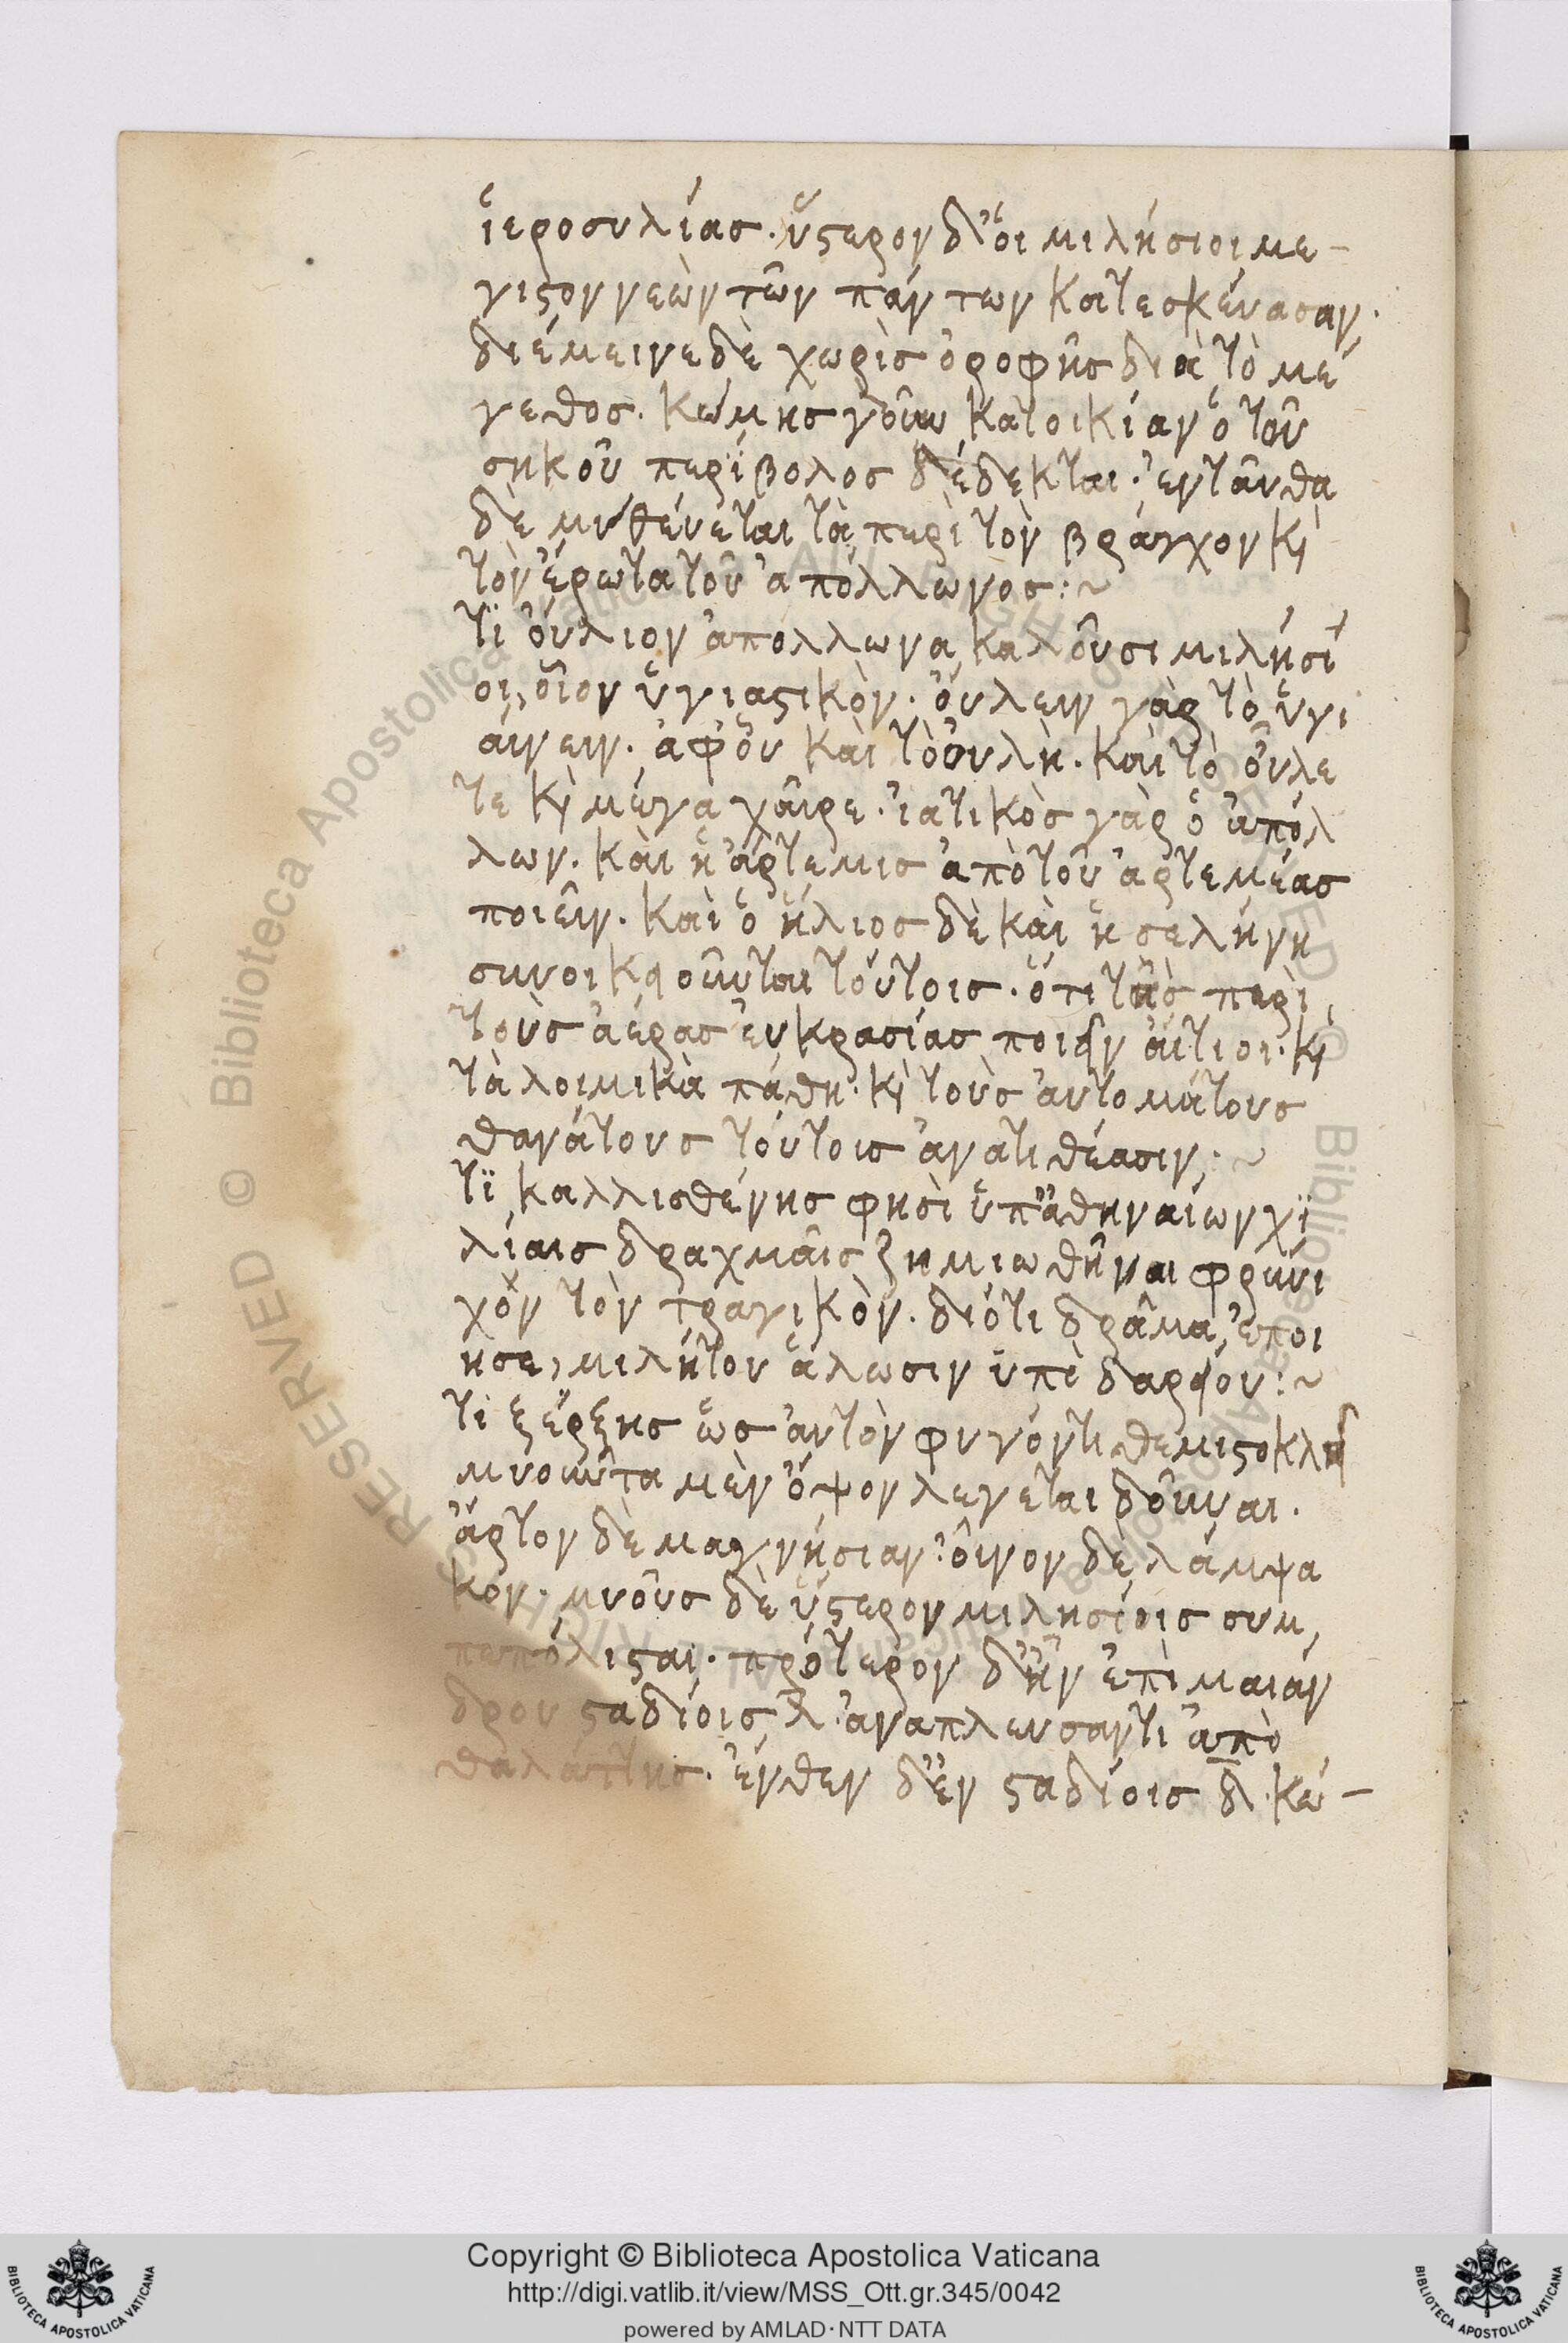 ἱεροσυλίας. ὕστερον δ' ὁι μιλήσιοι με-
γιστον νεὼν τῶν πάντων κατεσκέυασαν.
διέμεινε δὲ χωρὶς ὀροφῆς διὰ τὸ μέ
γεθος. κώμης γοῦν κατοικίαν ὁ τοῦ
σηκοῦ περίβολος δέδεκται. ἐνταῦθα
δὲ μυθέυεται τὰ περὶ τὸν βράγχον κ̀
τὸν ἔρωτα τοῦ ἀπόλλωνος:~
Τϊ ὄυλιον ἀπόλλωνα καλοῦσι μιλήσϊ
οι, οἷον ὑγιαστικὸν. ὄυλειν γὰρ τὸ ὑγι
άινειν. ἀφ' οὗ καὶ τὸ ὀυλὴ. καὶ τὸ οὖλε
τε κ̀ μέγα χαῖρε. ἰατικὸς γὰρ ὁ ἀπόλ
λων. καὶ ἡ ἄρτεμις ἀπὸ τοῦ ἀρτεμέας
ποιεῖν. καὶ ὁ ἥλιος δὲ καὶ ἡ σελήνη
συνοικειοῦνται τόυτοις. ὅτι τῆς περὶ
τοὺς ἀέρας ἐυκρασίας ποιεῖν ἄιτιοι. κ̀
τὰ λοιμικὰ πάθη. κ̀ τοὺς ἀυτομάτους
θανάτους τόυτοις ἀνατιθέασιν:~
Τϊ καλλισθένης φησὶ ὑπ' ἀθηναίων χϊ
λίαις δραχμαῖς ζημιωθῆναι φρύνι
χον τὸν τραγικὸν. διότι δρᾶμα ἐποί
ησε, μιλήτου ἅλωσιν ὑπὸ δαρείου:~
Τϊ ξέρξης ὡς ἀυτὸν φυγόντι θεμιστοκλεῖ
μυοῦντα μὲν ὄψον λεγεται δοῦναι.
ἄρτον δὲ μαγνήσιαν. οἶνον δὲ λάμψα
κον. μυοῦς δὲ ὕστερον μιλησίοις συμ
πεπόλισται. πρότερον δ' ἦν ἐπὶ μαιάν
δρου σταδίοις λ̄. ἀναπλευσαντι ἀπὸ
θαλάττης. ἔνθεν δ' ἐν σταδίοις δ̄. κώ-
Copyright © Biblioteca Apostolica Vaticana
http://digi.vatlib.it/view/MSS_Ott.gr.345/0042
powered by AMLAD·NTT DATA